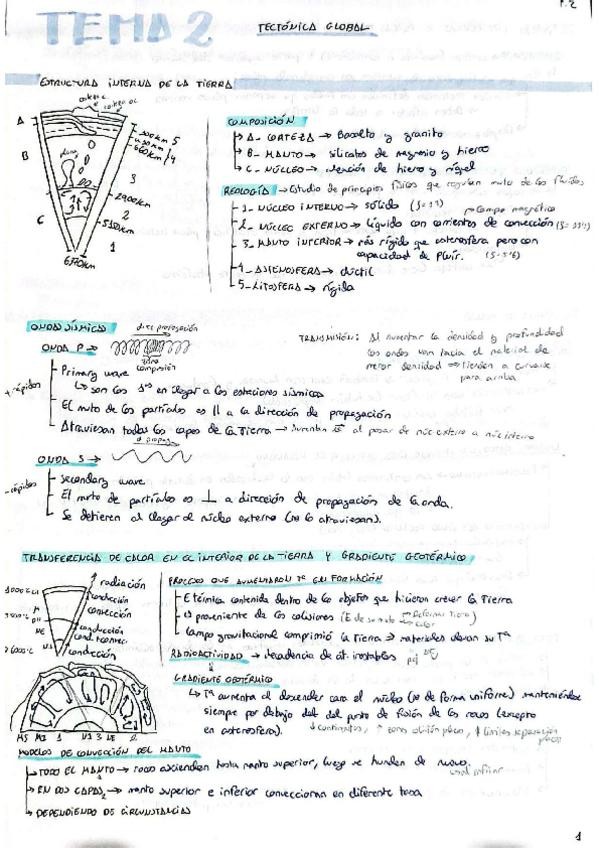 P.2
TEMA 2
TECTÓNICA GLOBAL
ESTRUCTURA INTERNA DE LA TIERRA
A
B
C
5
4
3
2900km
2
5150km
1
6370km
COMPOSICIÓN
A_ CORTEZA → Basalto y granito
B_ MANTO → silicatos de magnesio y hierro
C_ NÚCLEO → aleación de hierro y níquel
REOLOGÍA → Estudio de principios físicos que regulan mvto de los fluidos
1_ NÚCLEO INTERNO → sólido
→ Campo magnético
2_ NÚCLEO EXTERNO → líquido con corrientes de convección
3_ MANTO INFERIOR → más rígido que astenosfera pero con
capacidad de fluir.
4_ ASTENOSFERA → dúctil
5_ LITOSFERA → rígida
ONDAS SÍSMICAS
direc propagación
ONDA P →
compresión
TRANSMISIÓN: Al aumentar la densidad y profundidad
las ondas van hacia el material de
menor densidad → tienden a curvarse
para arriba
+ rápidos
Primary wave
↳ son las 1ªs en llegar a las estaciones sísmicas
El mvto de las partículas es || a la dirección de propagación
Atraviesan todas las capas de la Tierra → Aumentan al pasar de núc. externo a núc. interno
ONDA S →
- rápidos
secondary wave
El mvto de partículas es ⊥ a dirección de propagación de la onda.
Se detienen al llegar al núcleo externo (no lo atraviesan).
TRANSFERENCIA DE CALOR EN EL INTERIOR DE LA TIERRA Y GRADIENTE GEOTÉRMICO
radiación
conducción
convección
conducción
conducción
PROCESOS QUE AUMENTARON Tª EN FORMACIÓN
E térmica contenida dentro de los objetos que hicieron crecer la Tierra
E proveniente de las colisiones
Campo gravitacional comprimió la Tierra → materiales elevan su Tª
RADIOACTIVIDAD → decadencia de át. inestables
GRADIENTE GEOTÉRMICO
↳ Tª aumenta al descender cara el núcleo (no de forma uniforme) manteniéndose
siempre por debajo del del punto de fusión de las rocas (excepto
en astenosfera).
MS MI 1 NI 3 NE 2
MODELOS DE CONVECCIÓN DEL MANTO
→ TODO EL MANTO → rocas ascienden hasta manto superior, luego se hunden de nuevo.
→ EN DOS CAPAS → manto superior e inferior conveccionan en diferente tasa
→ DEPENDIENDO DE CIRCUNSTANCIAS
1